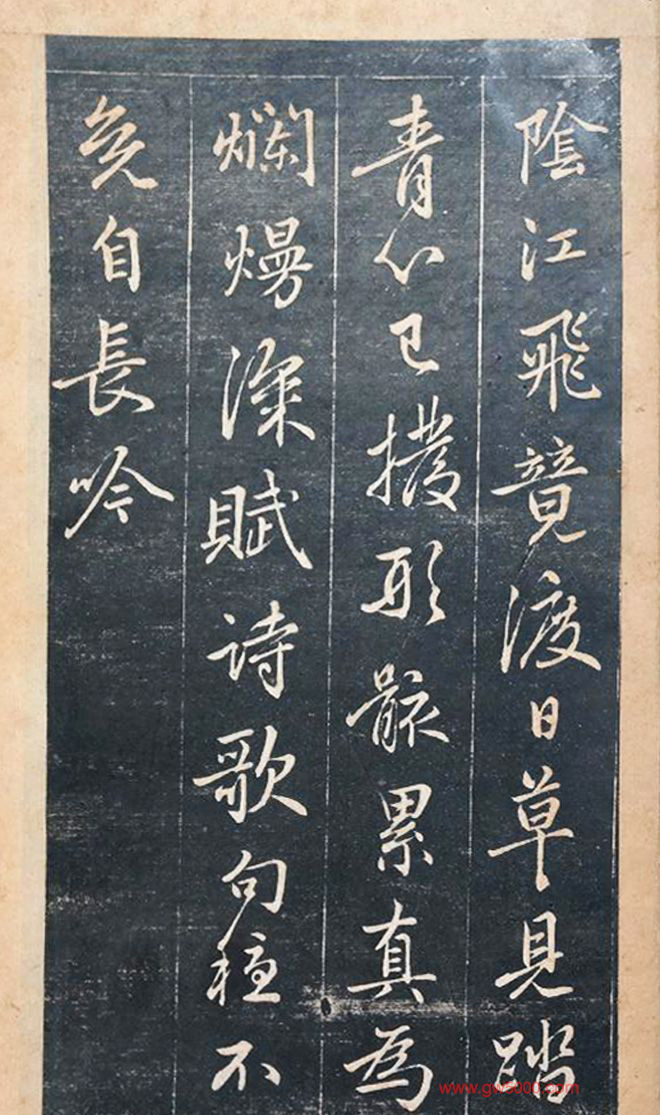 陰江飛竟渡日草見踏
青心已撥形骸累真為
爛熳深賦詩歌句穩不
免自長吟